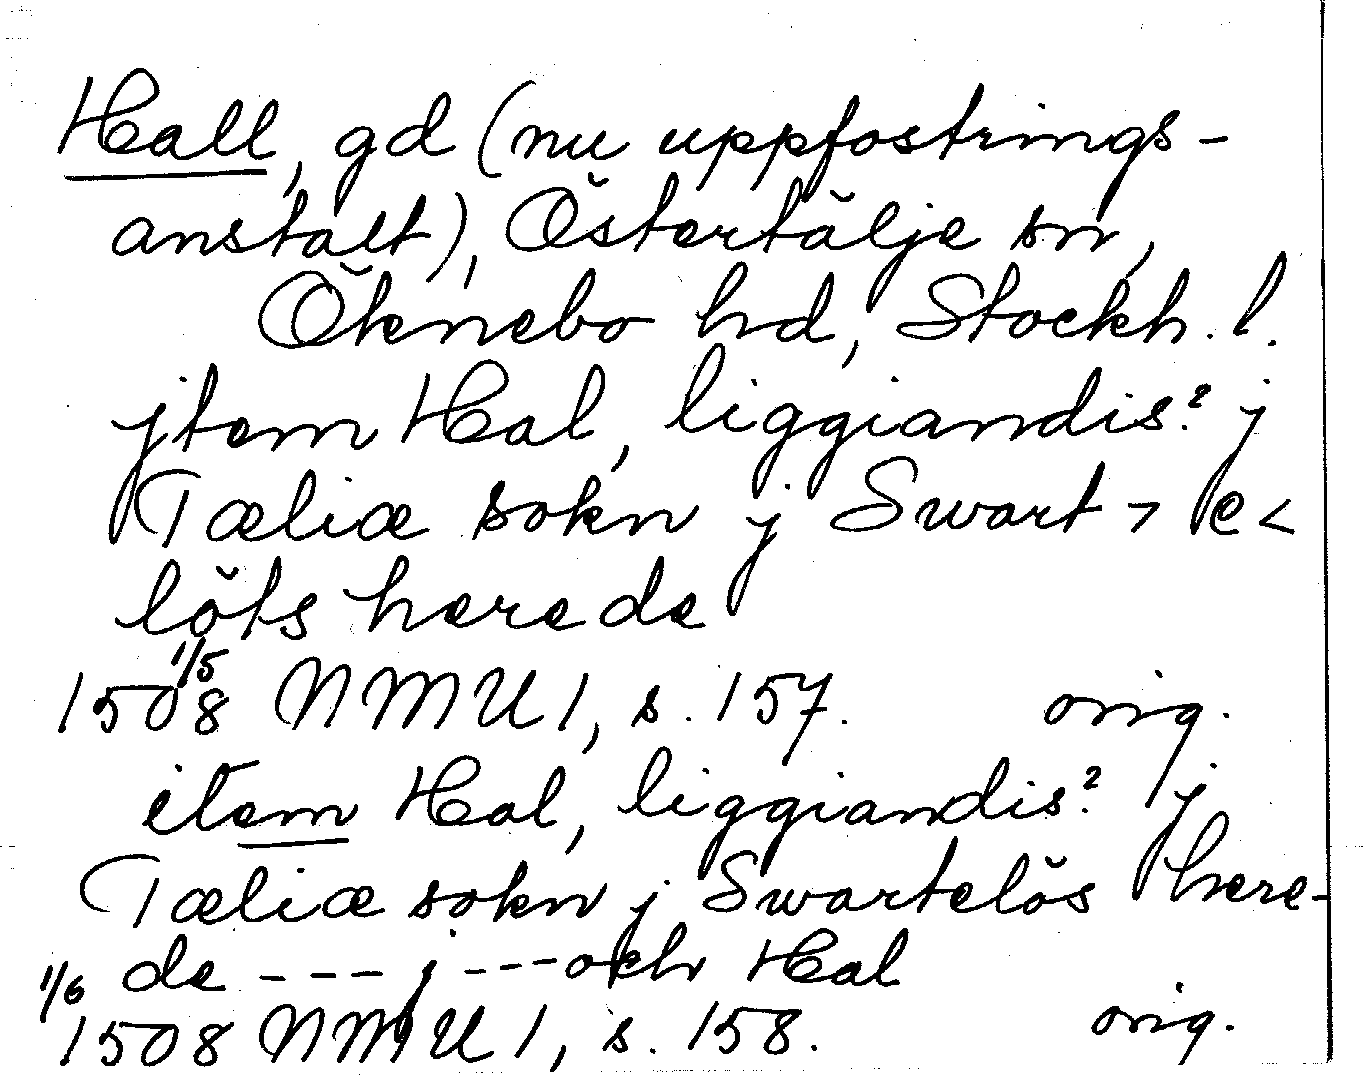 Hall, gd (nu uppfostrings-
anstalt), Östertälje sn,
Öknebo hd, Stockh. l.
jtem Hal, liggiandis? j
Tæliæ sokn j Swart > e <
löts herede
1508 1/5 NMU 1, s. 157. orig.
item Hal, liggiandis? j
Tæliæ sokn j Swartelös here-
de --- j --- och Hal
1/6 1508 NMU 1, s. 158. orig.